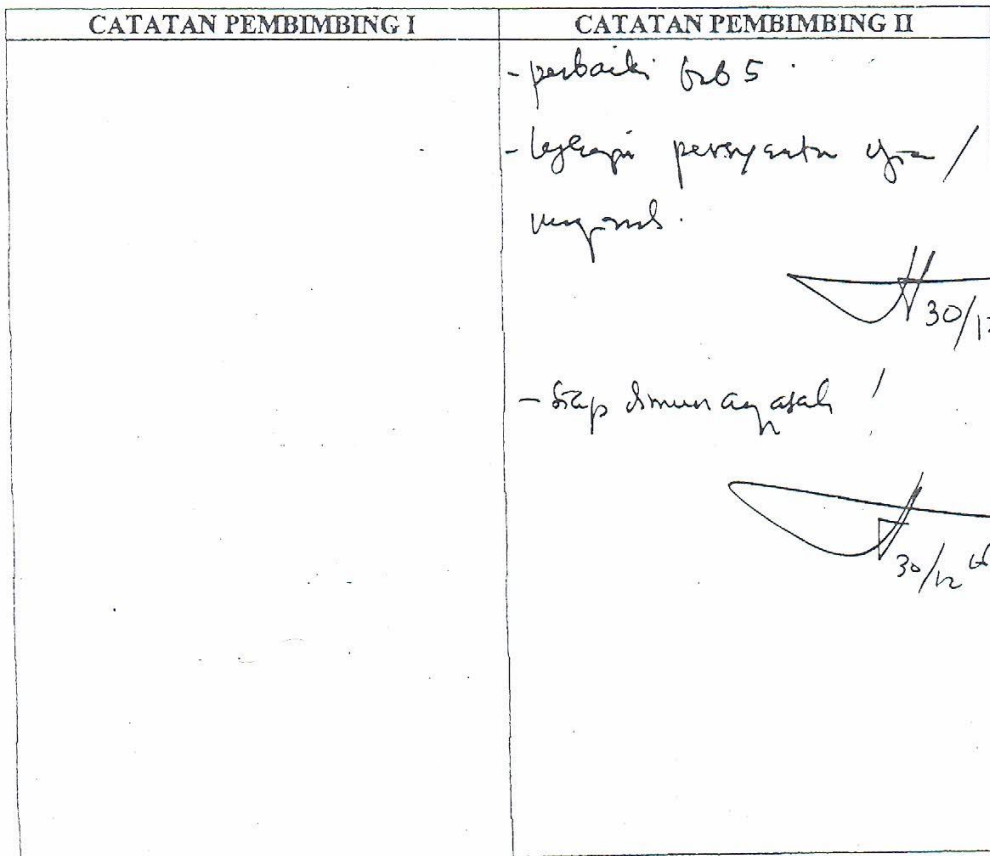 CATATAN PEMBIMBING I
CATATAN PEMBIMBING II
- perbaiki bab 5.
- lengkapi persyaratan /
30/12
- Siap dimunaqasah !
30/12